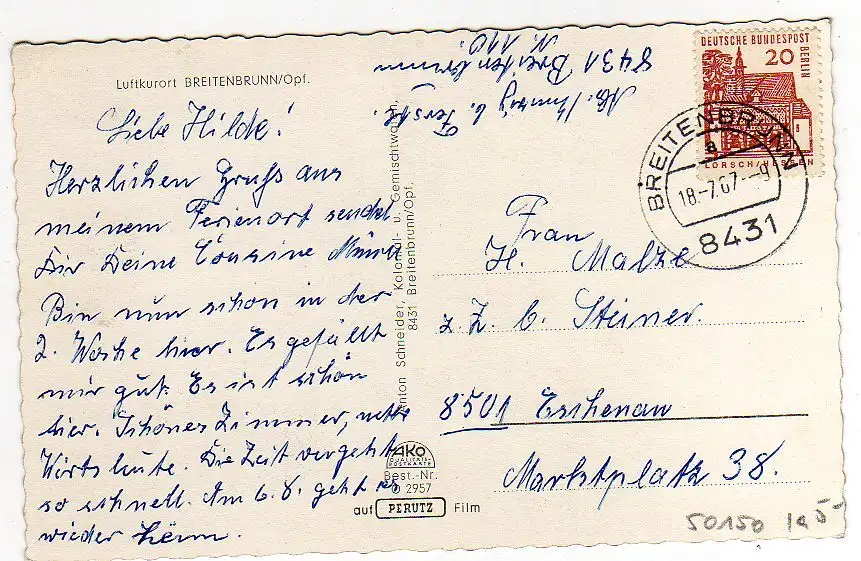 Luftkurort BREITENBRUNN/Opf.
Liebe Hilde!
Herzlichen Gruß aus
meinem Ferienort sendet
Dir Deine Cousine
Bin nun schon in der
2. Woche hier. Es gefällt
mir gut. Es ist schön
hier. Schönes Zimmer, nette
Wirtsleute. Die Zeit vergeht
so schnell. Am 6.8. geht es
wieder heim.
b. Ferstl.
8431 Breitenbrunn
N. 110
Anton Schneider, Kolonial- u. Gemischtwaren,
8431 Breitenbrunn/Opf.
AKO
QUALITÄTS-
POSTKARTE
Best.-Nr.
2957
auf PERUTZ Film
DEUTSCHE BUNDESPOST
BERLIN
20
LORSCH/HESSEN
BREITENBRUNN
a
18.-7.67.--9
8431
Frau
H. Malze
z. Z. b. Steiner.
8501 Eschenau
Marktplatz 38.
50150